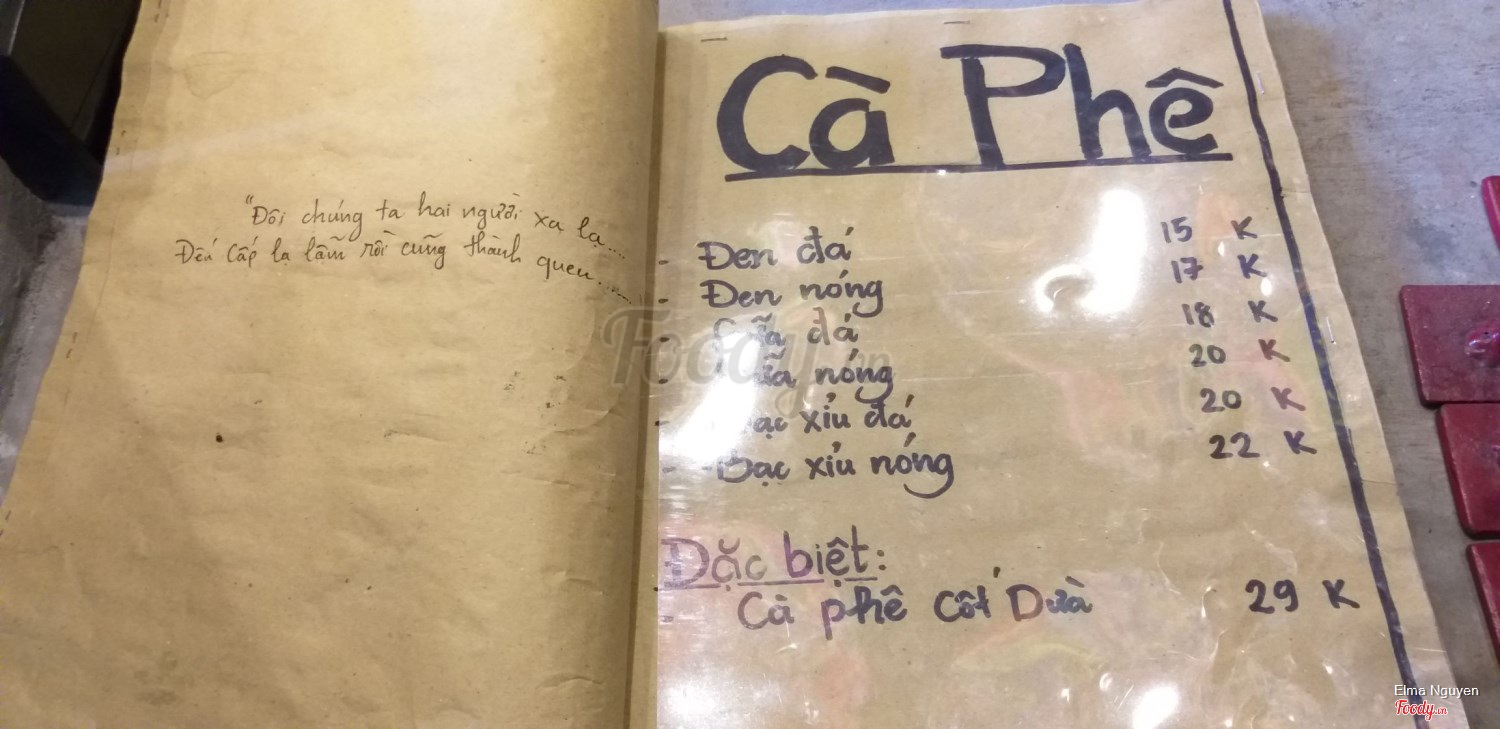 "Đôi chúng ta hai người xa lạ...
Đến Cấp lạ lẫm rồi cũng thành quen......
Cà Phê
- Đen đá 15 K
- Đen nóng 17 K
- Sữa đá 18 K
- Sữa nóng 20 K
- Bạc xỉu đá 20 K
- Bạc xỉu nóng 22 K
Đặc biệt:
- Cà phê Cốt Dừa 29 K
Foody.vn
Elma Nguyen
Foody.vn